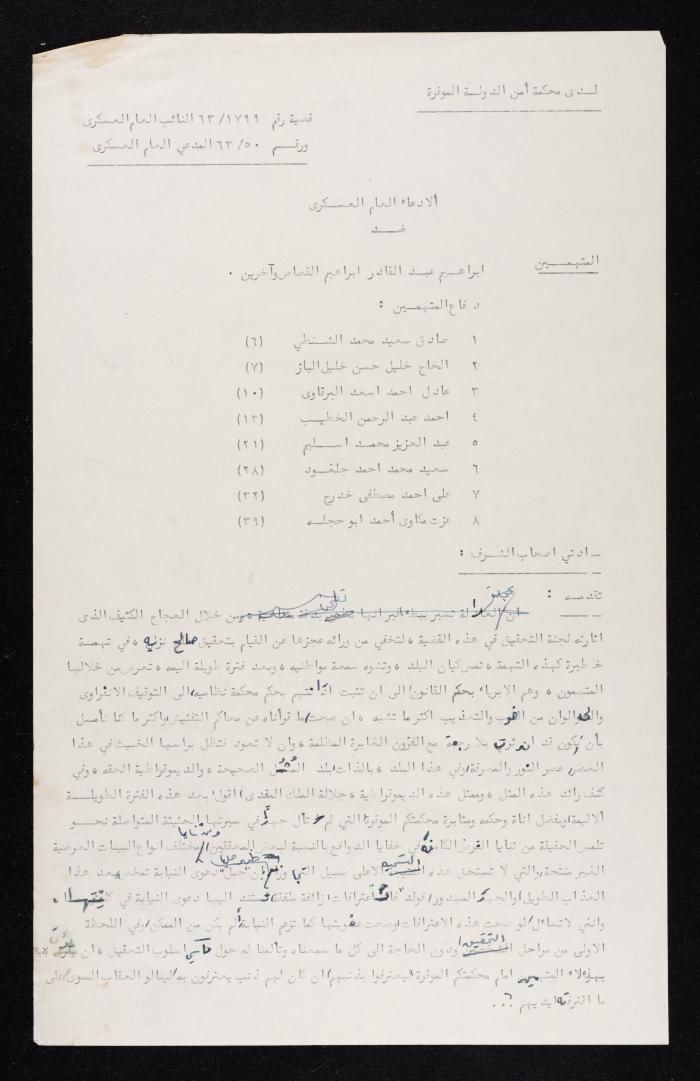 لدى محكمة أمن الدولة الموقرة
قضية رقم ٦٣/١٧٩٩ النائب العام العسكرى
ورقم ٦٣/٥٠ المدعي العام العسكرى
ألادعاء العام العسكرى
ضد
المتهمين
ابراهيم عبد القادر ابراهيم القصاص وآخرين .
دفاع المتهمين :
١ صادق سعيد محمد الشنطي (٦)
٢ الحاج خليل حسن خليل الباز (٧)
٣ عادل احمد اسعد البرقاوى (١٠)
٤ احمد عبد الرحمن الخطيب (١٣)
٥ عبد العزيز محمد اسليم (٢١)
٦ سعيد محمد احمد جلغود (٢٨)
٧ على احمد مصطفى خدرج (٣٢)
٨ عزت مكاوى أحمد ابو حجله (٣٩)
سادتي اصحاب الشرف :
تقدمه :
من خلال العجاج الكثيف الذى
اثارته لجنة التحقيق في هذه القضية ، لتخفي من ورائه عجزها عن القيام بتحقيق صالح نزيه ، في تهمة
خطيرة كهذه التهمة ، تمس كيان البلد ، وتشوه سمعة مواطنيه ، وبعد فترة طويلة اليمه ، تعرض من خلالها
المتهمون ، وهم الابرياء بحكم القانون الى ان تثبت ادانتهم بحكم محكمة نظاميه الى التوقيف الانفرادى
والى الوان من الضرب والتعذيب اكثر ما تشبه ، ان صحت ما قرأناه عن محاكم التفتيش واكثر ما كنا نأمل
بأن يكون قد اندثرت بلا رجعة مع القرون الغابرة المظلمة ، وان لا تعود فتطل براسها الخبيث في هذا
العصر عصر النور والمعرفة وفي هذا البلد ، بالذات بلد المثل الصحيحة ، والديموقراطية الحقه ، وفي
كنف رائد هذه المثل ، وممثل هذه الديموقراطية ، جلالة الملك المفدى اقول بعد هذه الفترة الطويلة
الأليمة وبفضل اناة وحكمه ومثابرة محكمتكم الموقرة التي لم تأل جهدا في سيرتها الحثيثة المتواصلة نحو
تلمس الحقيقة من ثنايا الغرض الكامن في خفايا الدوافع بالنسبة لبعض المحققين ومن ثنايا مختلف انواع البينات العرضية
الغير منتجة والتي لا تستحق هذه التسمية الاعلى سبيل التجاوز
العذاب الطويل والجهد المهدور فولد اعترافات زائفة ملفقة تستند اليها دعوى النيابة في
وانني لاتساءل لو صحت هذه الاعترافات وصحت عفويتها كما تزعم النيابة ألم يكن من الممكن وفي اللحظة
الاولى من مراحل التحقيق ودون الحاجة الى كل ما سمعناه وتألمنا له حول مآسي اسلوب التحقيق ، ان
بهؤلاء المتهمين امام محكمتكم الموقرة ليعترفوا بذنبهم ان كان لهم ذنب يعترفون به لينالو العقاب السوى على
ما اقترفته ايديهم ؟..